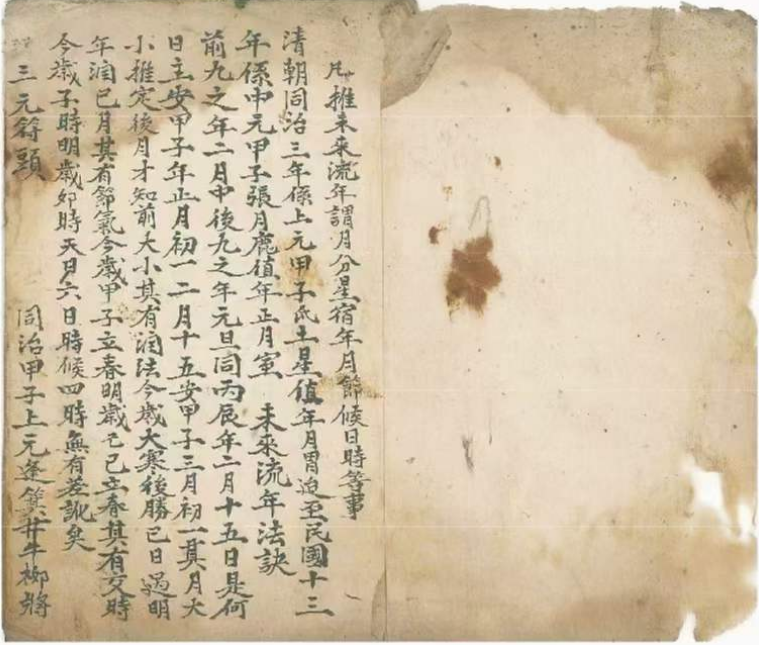 凡推未来流年謂月分星宿年月節候日時等事
清朝同治三年係上元甲子氐土星值年月胃迨至民國十三
年係中元甲子張月鹿值年正月室 未來流年法訣
前九之年二月中後九之年元旦同丙辰年二月十五日是何
日主安甲子年正月初一二月十五安甲子三月初一真月大
小推定後月才知前大小其有润法今歲大寒後勝已日過明
年润已月其有節氣今歲甲子立春明歲己巳立春其有交時
今歲子時明歲卯時天月六日時候四時無有差訛矣
三元符頭 同治甲子上元逢箕井牛柳將